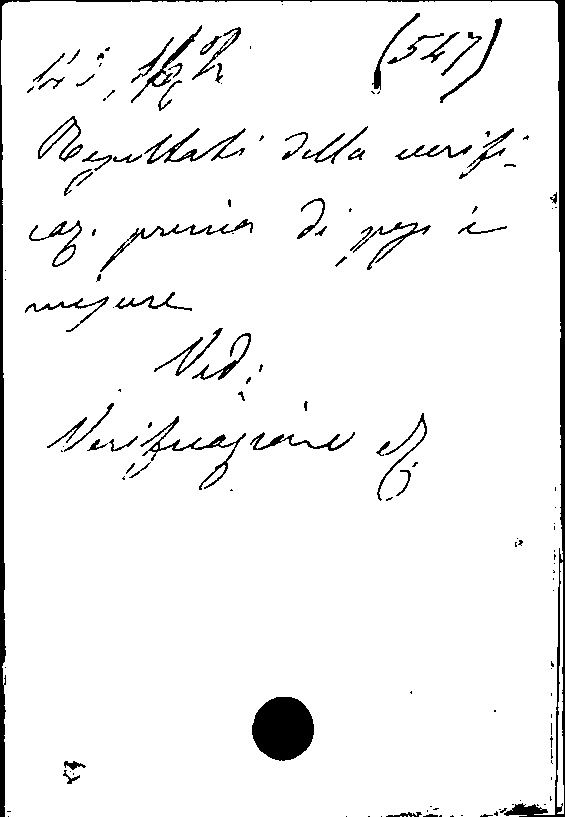 (547)
Resultati della verifi-
caz. prima di pesi e
misure
Ved:
Verificazione